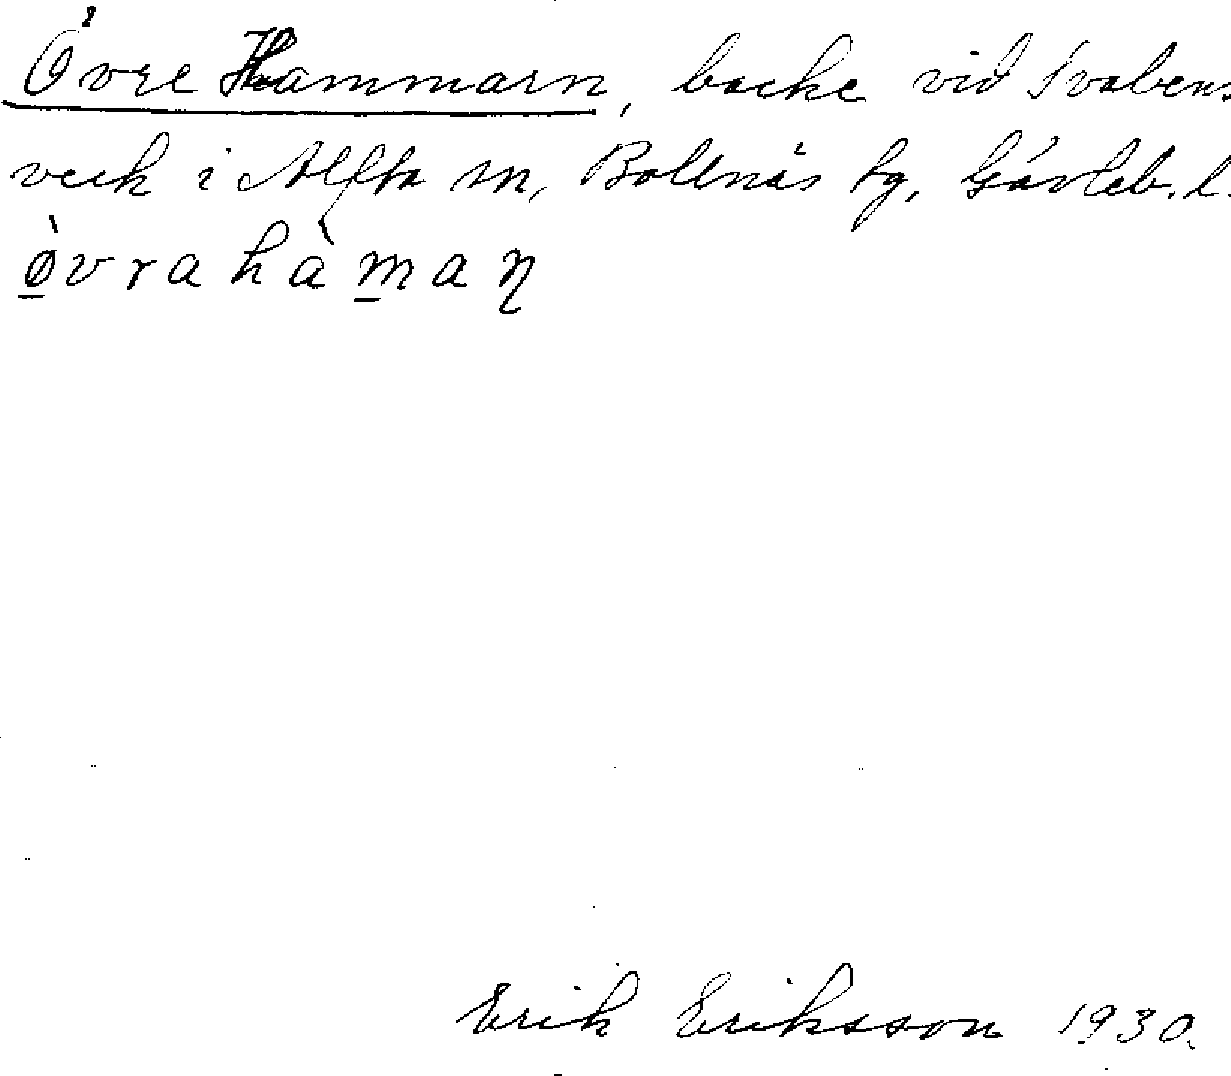 Övre Hammarn, backe vid Svabens
verk i Alfta sn, Bollnäs fg, Gävleb. l.
øvrahàmaη
Erik Eriksson 1930.